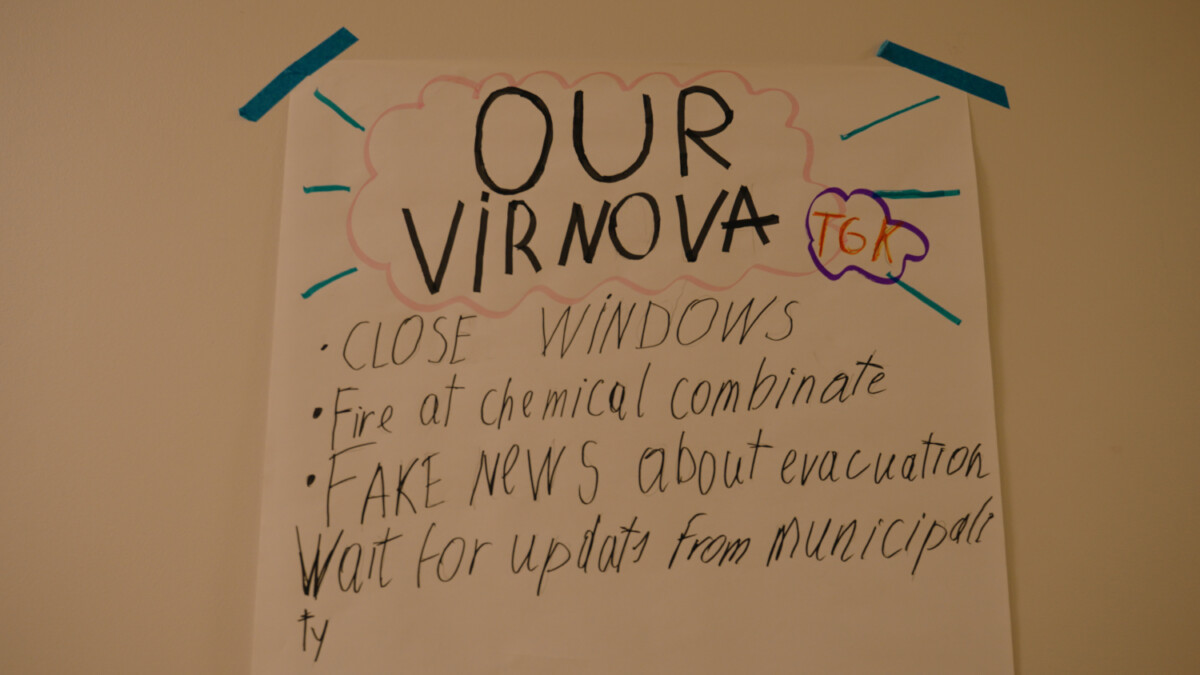 OUR
VIRNOVA
TGK
• CLOSE WINDOWS
• Fire at chemical combinate
• FAKE NEWS about evacuation
Wait for updats from municipali
ty